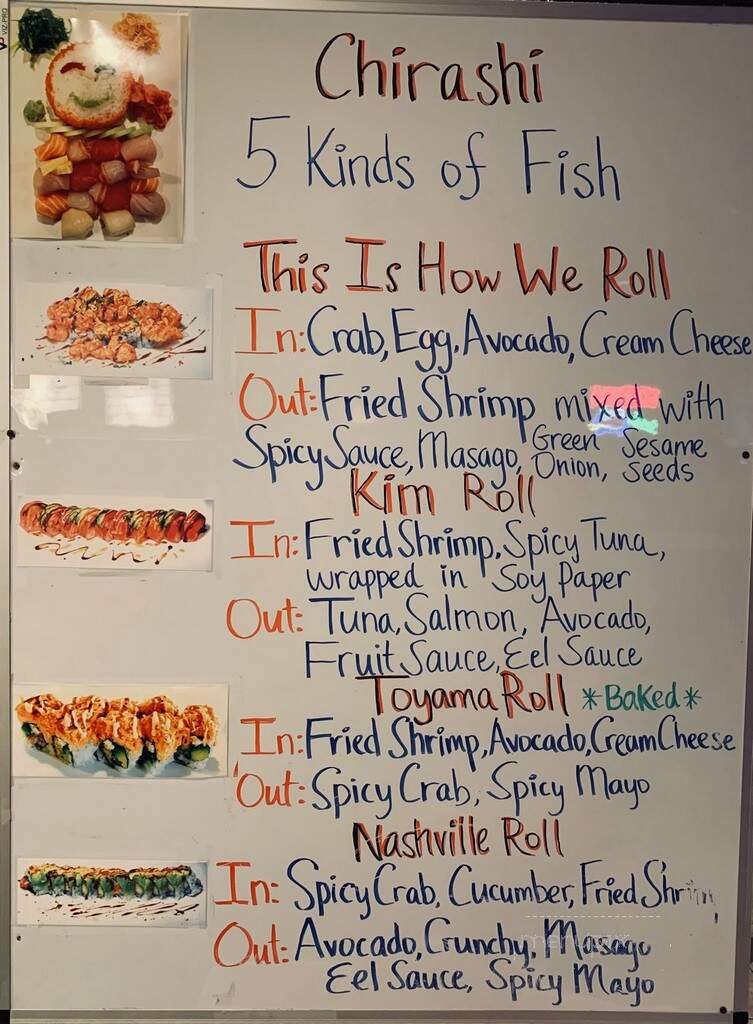 Chirashi
5 Kinds of Fish
This Is How We Roll
In: Crab, Egg, Avocado, Cream Cheese
Out: Fried Shrimp mixed with
Spicy Sauce, Masago, Green Onion, Sesame Seeds
Kim Roll
In: Fried Shrimp, Spicy Tuna,
wrapped in Soy Paper
Out: Tuna, Salmon, Avocado,
Fruit Sauce, Eel Sauce
Toyama Roll *Baked*
In: Fried Shrimp, Avocado, Cream Cheese
Out: Spicy Crab, Spicy Mayo
Nashville Roll
In: Spicy Crab, Cucumber, Fried Shrim
Out: Avocado, Crunchy, Masago
Eel Sauce, Spicy Mayo
VIZ-PRO